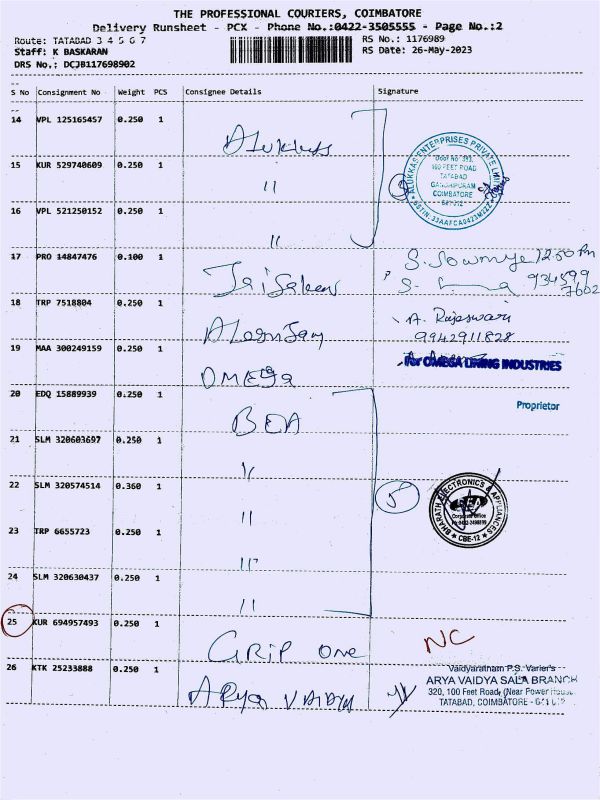 THE PROFESSIONAL COURIERS, COIMBATORE
Delivery Runsheet - PCX - Phone No.:0422-3505555 - Page No.:2
Route: TATABAD 3 4 5 6 7
RS No.: 1176989
Staff: K BASKARAN
RS Date: 26-May-2023
DRS No.: DCJB117698902
S No Consignment No Weight PCS Consignee Details Signature
14 VPL 125165457 0.250 1 Alukkas
ALUKKAS ENTERPRISES PRIVATE LIMITED
Door No 383,
100 FEET ROAD
TATABAD
GANDHIPURAM
COIMBATORE
641 012
GSTIN:33AAFCA0423M2ZZ
15 KUR 529740609 0.250 1 "
16 VPL 521250152 0.250 1 "
17 PRO 14847476 0.100 1
S. Sowmya 12:50 Pm
934599
7602
18 TRP 7518804 0.250 1
A. Rajeswari
9942911828
19 MAA 300249159 0.250 1 OMEGA
For OMEGA LINING INDUSTRIES
Proprietor
20 EDQ 15889939 0.250 1 BEA
21 SLM 320603697 0.250 1 "
22 SLM 320574514 0.360 1 "
5
BHARATH ELECTRONICS & APPLIANCES
BEA
Corporate Office
CBE-12
23 TRP 6655723 0.250 1 "
24 SLM 320630437 0.250 1 "
25 KUR 694957493 0.250 1 GRIP one NC
26 KTK 25233888 0.250 1 Arya VAIDYA
Vaidyaratnam P.S. Varier's
ARYA VAIDYA SALA BRANCH
320, 100 Feet Road, (Near Power House
TATABAD, COIMBATORE - 641 012